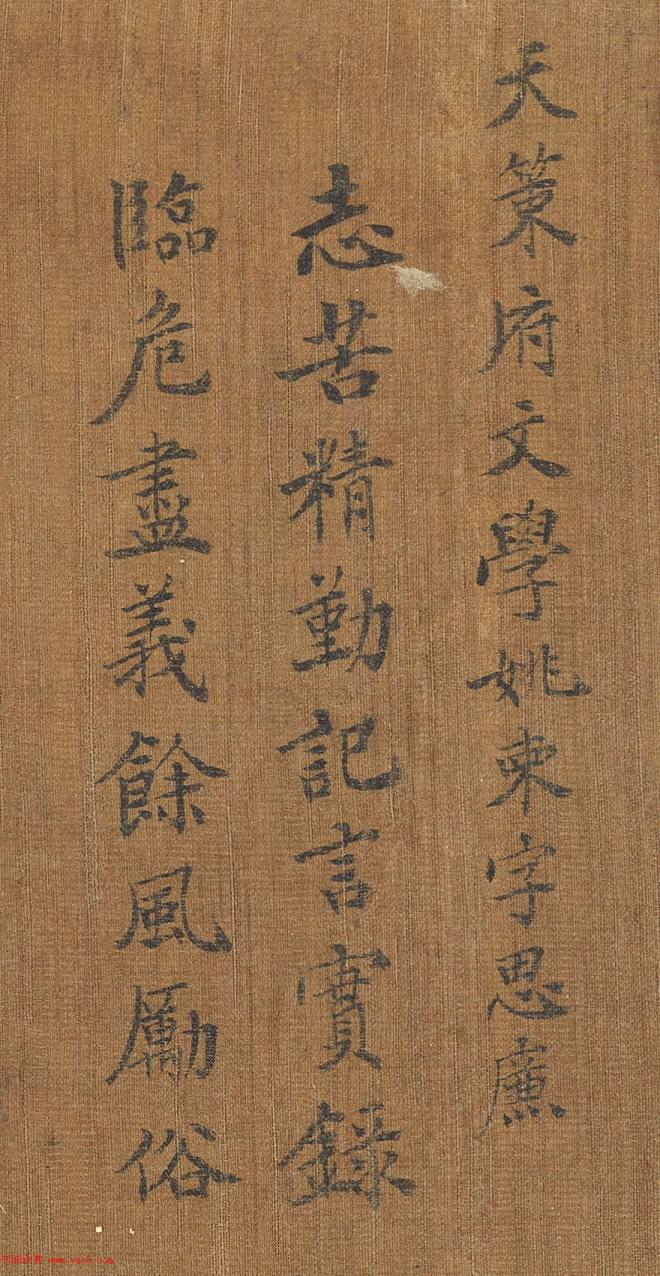 天策府文學姚柬字思廉
志苦精勤記言實錄
臨危盡義餘風勵俗
www.yac8.com